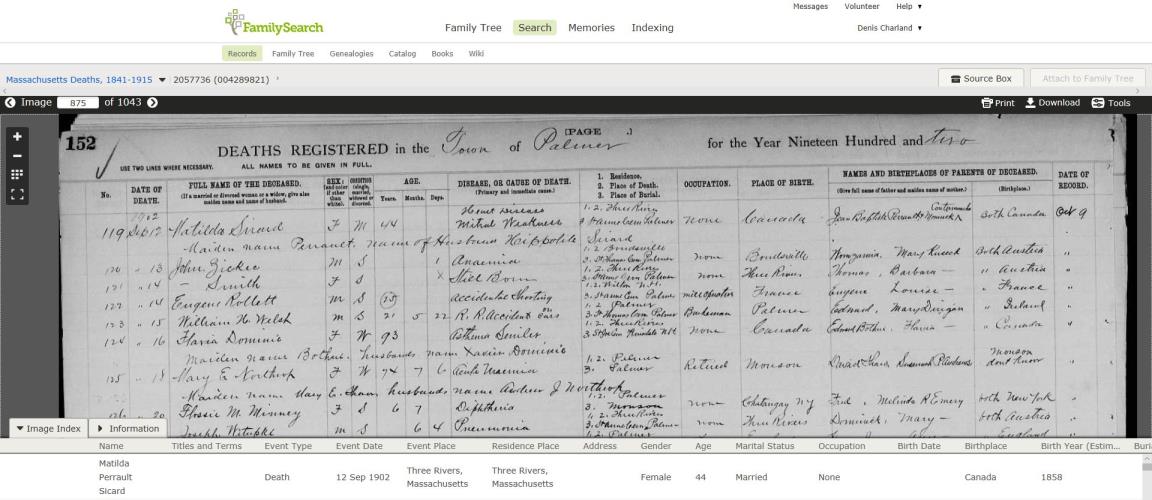 Messages Volunteer Help ▼
FamilySearch
Family Tree Search Memories Indexing
Denis Charland ▼
Records Family Tree Genealogies Catalog Books Wiki
Massachusetts Deaths, 1841-1915 ▼ 2057736 (004289821)
Source Box Attach to Family Tree
Image 875 of 1043
Print Download Tools
152
DEATHS REGISTERED in the Town of Palmer [PAGE .] for the Year Nineteen Hundred and two
USE TWO LINES WHERE NECESSARY. ALL NAMES TO BE GIVEN IN FULL.
No. DATE OF DEATH. FULL NAME OF THE DECEASED. (If a married or divorced woman or a widow, give also maiden name and name of husband.) SEX: (and color if other than white). CONDITION (single, married, widowed or divorced. AGE. Years. Months. Days. DISEASE, OR CAUSE OF DEATH. (Primary and immediate cause.) 1. Residence. 2. Place of Death. 3. Place of Burial. OCCUPATION. PLACE OF BIRTH. NAMES AND BIRTHPLACES OF PARENTS OF DECEASED. (Give full name of father and maiden name of mother.) (Birthplace.) DATE OF RECORD.
1902 Heart Disease 1. 2. Three Rivers
119 Sep 12 Matilda Sicard F M 44 Mitral Weakness Palmer none Canada Jean Baptiste Perrault Both Canada Oct 9
Maiden name Perrault, name of Husband Hippolite Sicard
120 " 13 John Zickee M S 1 Anaemia Bondsville none Bondsville Mary Both Austria "
121 " 14 — Smith F S Still Born 1. 2. Three Rivers none Three Rivers Thomas, Barbara — " Austria "
122 " 14 Eugene Rollett M S 15 Accidental Shooting 1. 2. Wilton N.H. mill operator France Eugene Louise — " France "
123 " 15 William H. Welsh M S 21 5 22 R. R. Accident on Cars 1. 2. Palmer Brakeman Palmer Edward, Mary Dirigan " Ireland "
124 " 16 Flavia Dominic F W 93 Asthma Senility 1. 2. Three Rivers none Canada Flavia — " Canada "
Maiden name husbands name Xavier Dominic
125 " 18 Mary E Northrop F W 74 7 6 Acute Uraemia 1. 2. Palmer 3. Palmer Retired Monson David Monson dont know "
Maiden name Mary E. husbands name Andrew J Northrop
126 " 20 Flossie M. Minney F S 6 7 Diphtheria 1. 2. Palmer 3. Monson none Chatangay NY Fred, Melinda R Emery both New York "
Joseph Witupki M S 6 4 Pneumonia 1. 2. Three Rivers Palmer none Three Rivers Dominick, Mary — both Austria
1. 2. Palmer " England
▼ Image Index ▶ Information
Name Titles and Terms Event Type Event Date Event Place Residence Place Address Gender Age Marital Status Occupation Birth Date Birthplace Birth Year (Estim... Buri
Matilda Perrault Sicard Death 12 Sep 1902 Three Rivers, Massachusetts Three Rivers, Massachusetts Female 44 Married None Canada 1858